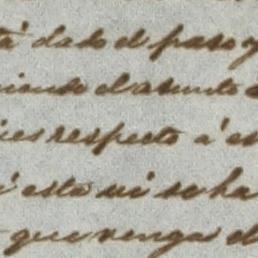 tá dado el paso y
niendo el asunto
ues respecto á es
i esta ni se ha
que venga el